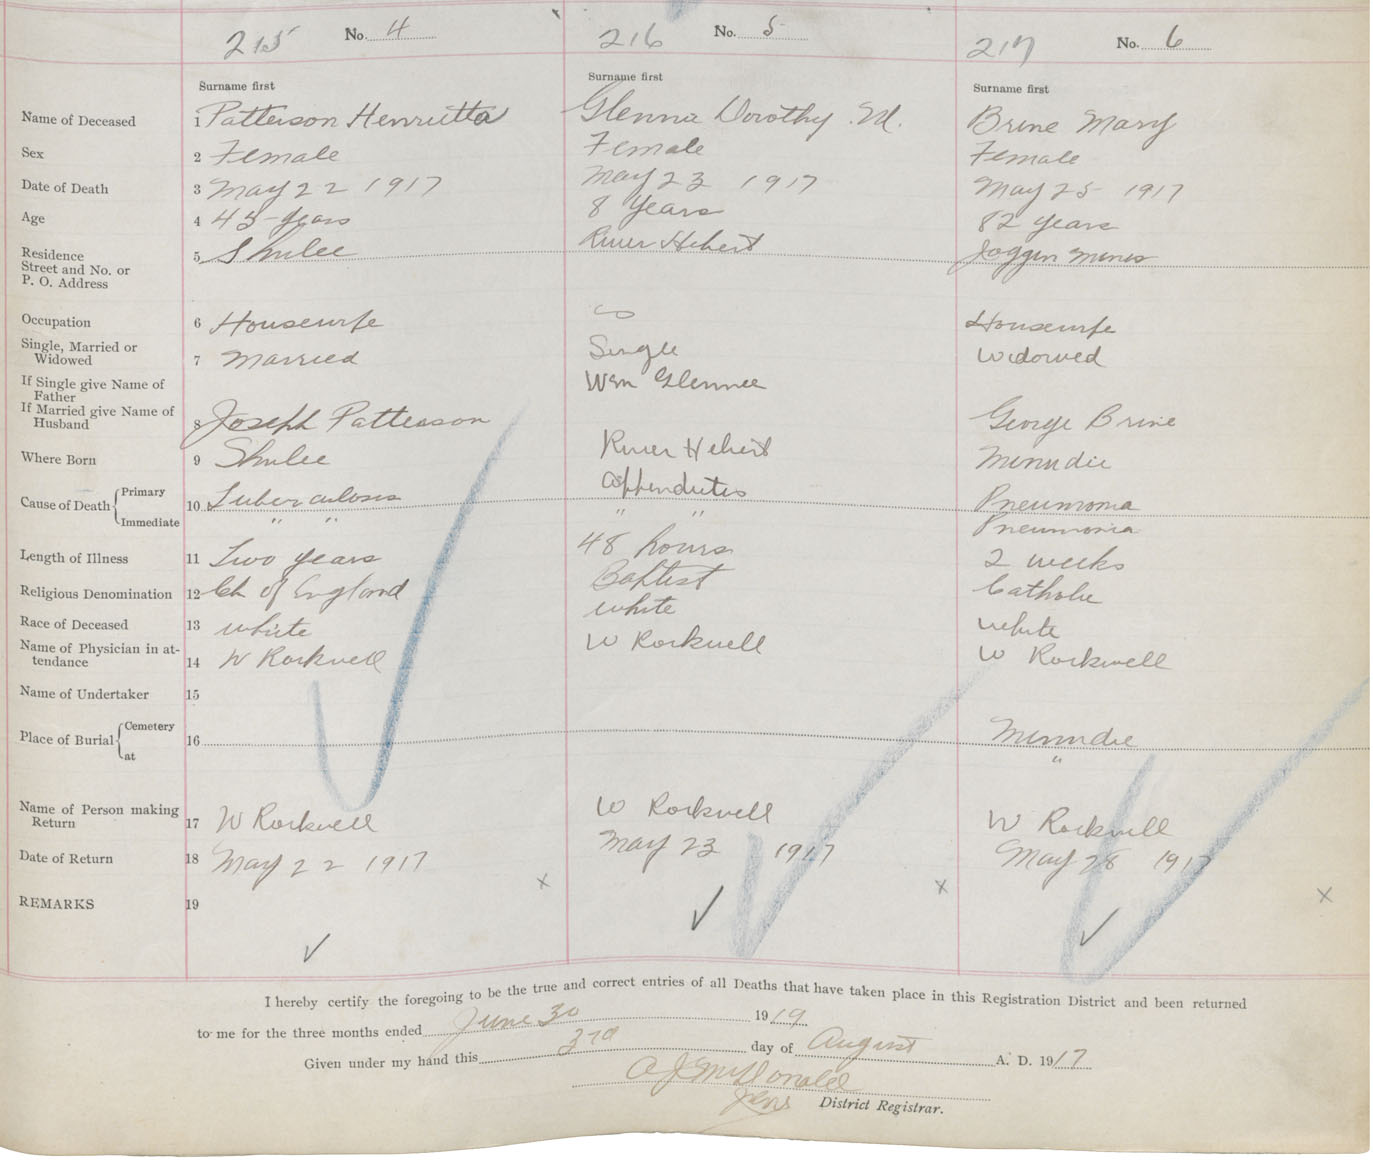 215 No. 4 216 No. 5 217 No. 6
Surname first Surname first Surname first
Name of Deceased 1 Patterson Henrietta Glenna Dorothy M. Brine Mary
Sex 2 Female Female Female
Date of Death 3 May 22 1917 May 23 1917 May 25 1917
Age 4 45 years 8 years 82 years
Residence
Street and No. or
P. O. Address 5 Shulee River Hebert Joggin Mines
Occupation 6 Housewife Housewife
Single, Married or
Widowed 7 Married Single Widowed
If Single give Name of
Father Wm Glennie
If Married give Name of
Husband 8 Joseph Patterson George Brine
Where Born 9 Shulee River Hebert Minudie
Cause of Death { Primary 10 Tuberculosis Appendicitis Pneumonia
Immediate " " " " Pneumonia
Length of Illness 11 Two years 48 hours 2 weeks
Religious Denomination 12 Ch of England Baptist Catholic
Race of Deceased 13 white white white
Name of Physician in at-
tendance 14 W Rockwell W Rockwell W Rockwell
Name of Undertaker 15
Place of Burial { Cemetery 16 Minudie
at "
Name of Person making
Return 17 W Rockwell W Rockwell W Rockwell
Date of Return 18 May 22 1917 May 23 1917 May 28 1917
x x x
REMARKS 19
I hereby certify the foregoing to be the true and correct entries of all Deaths that have taken place in this Registration District and been returned
to me for the three months ended June 30 1919
Given under my hand this 3rd day of August A. D. 1917
A J McDonald
District Registrar.